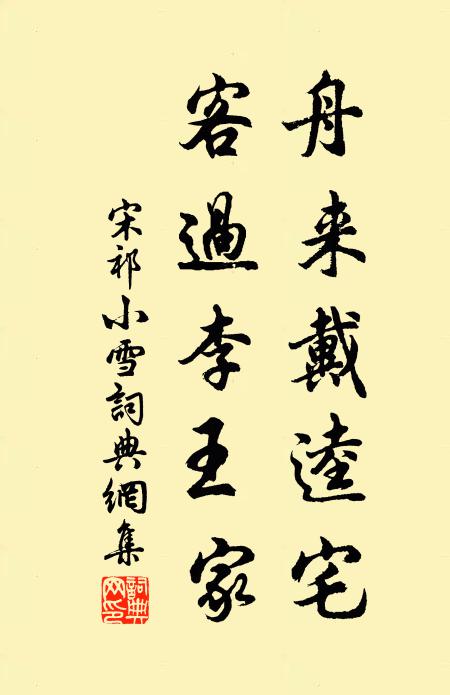 舟来戴逵宅
客過李王家
宋祁小雪詞典網集
詞典
网印